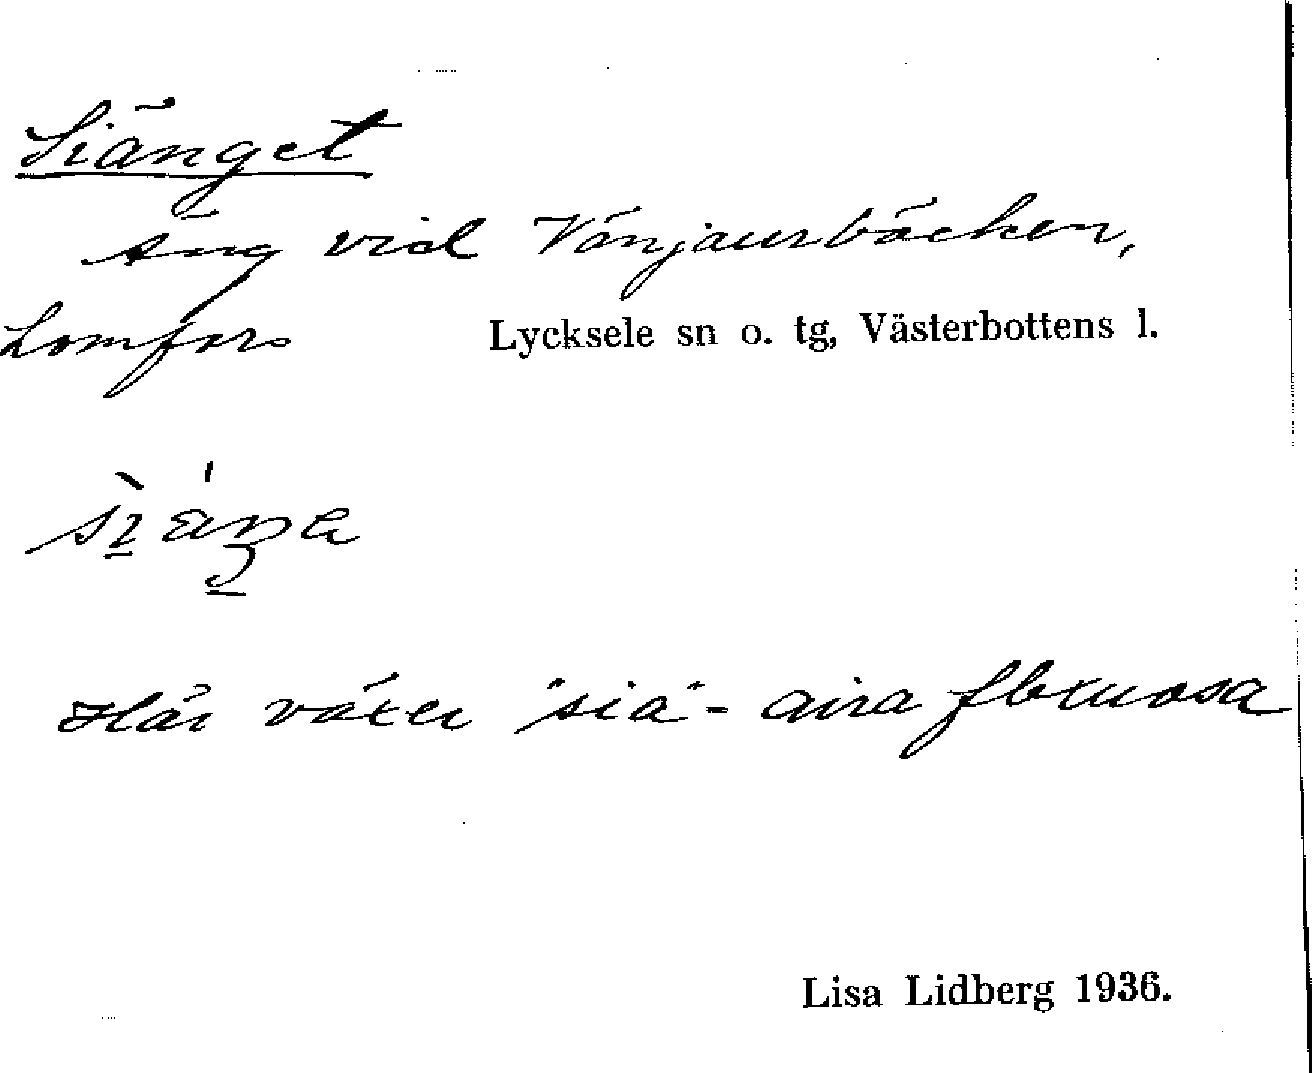 Siänget
äng vid Vänjaurbäcken,
Lomfors Lycksele sn o. tg, Västerbottens l.
Här växer "sia" - aira flexuosa
Lisa Lidberg 1936.